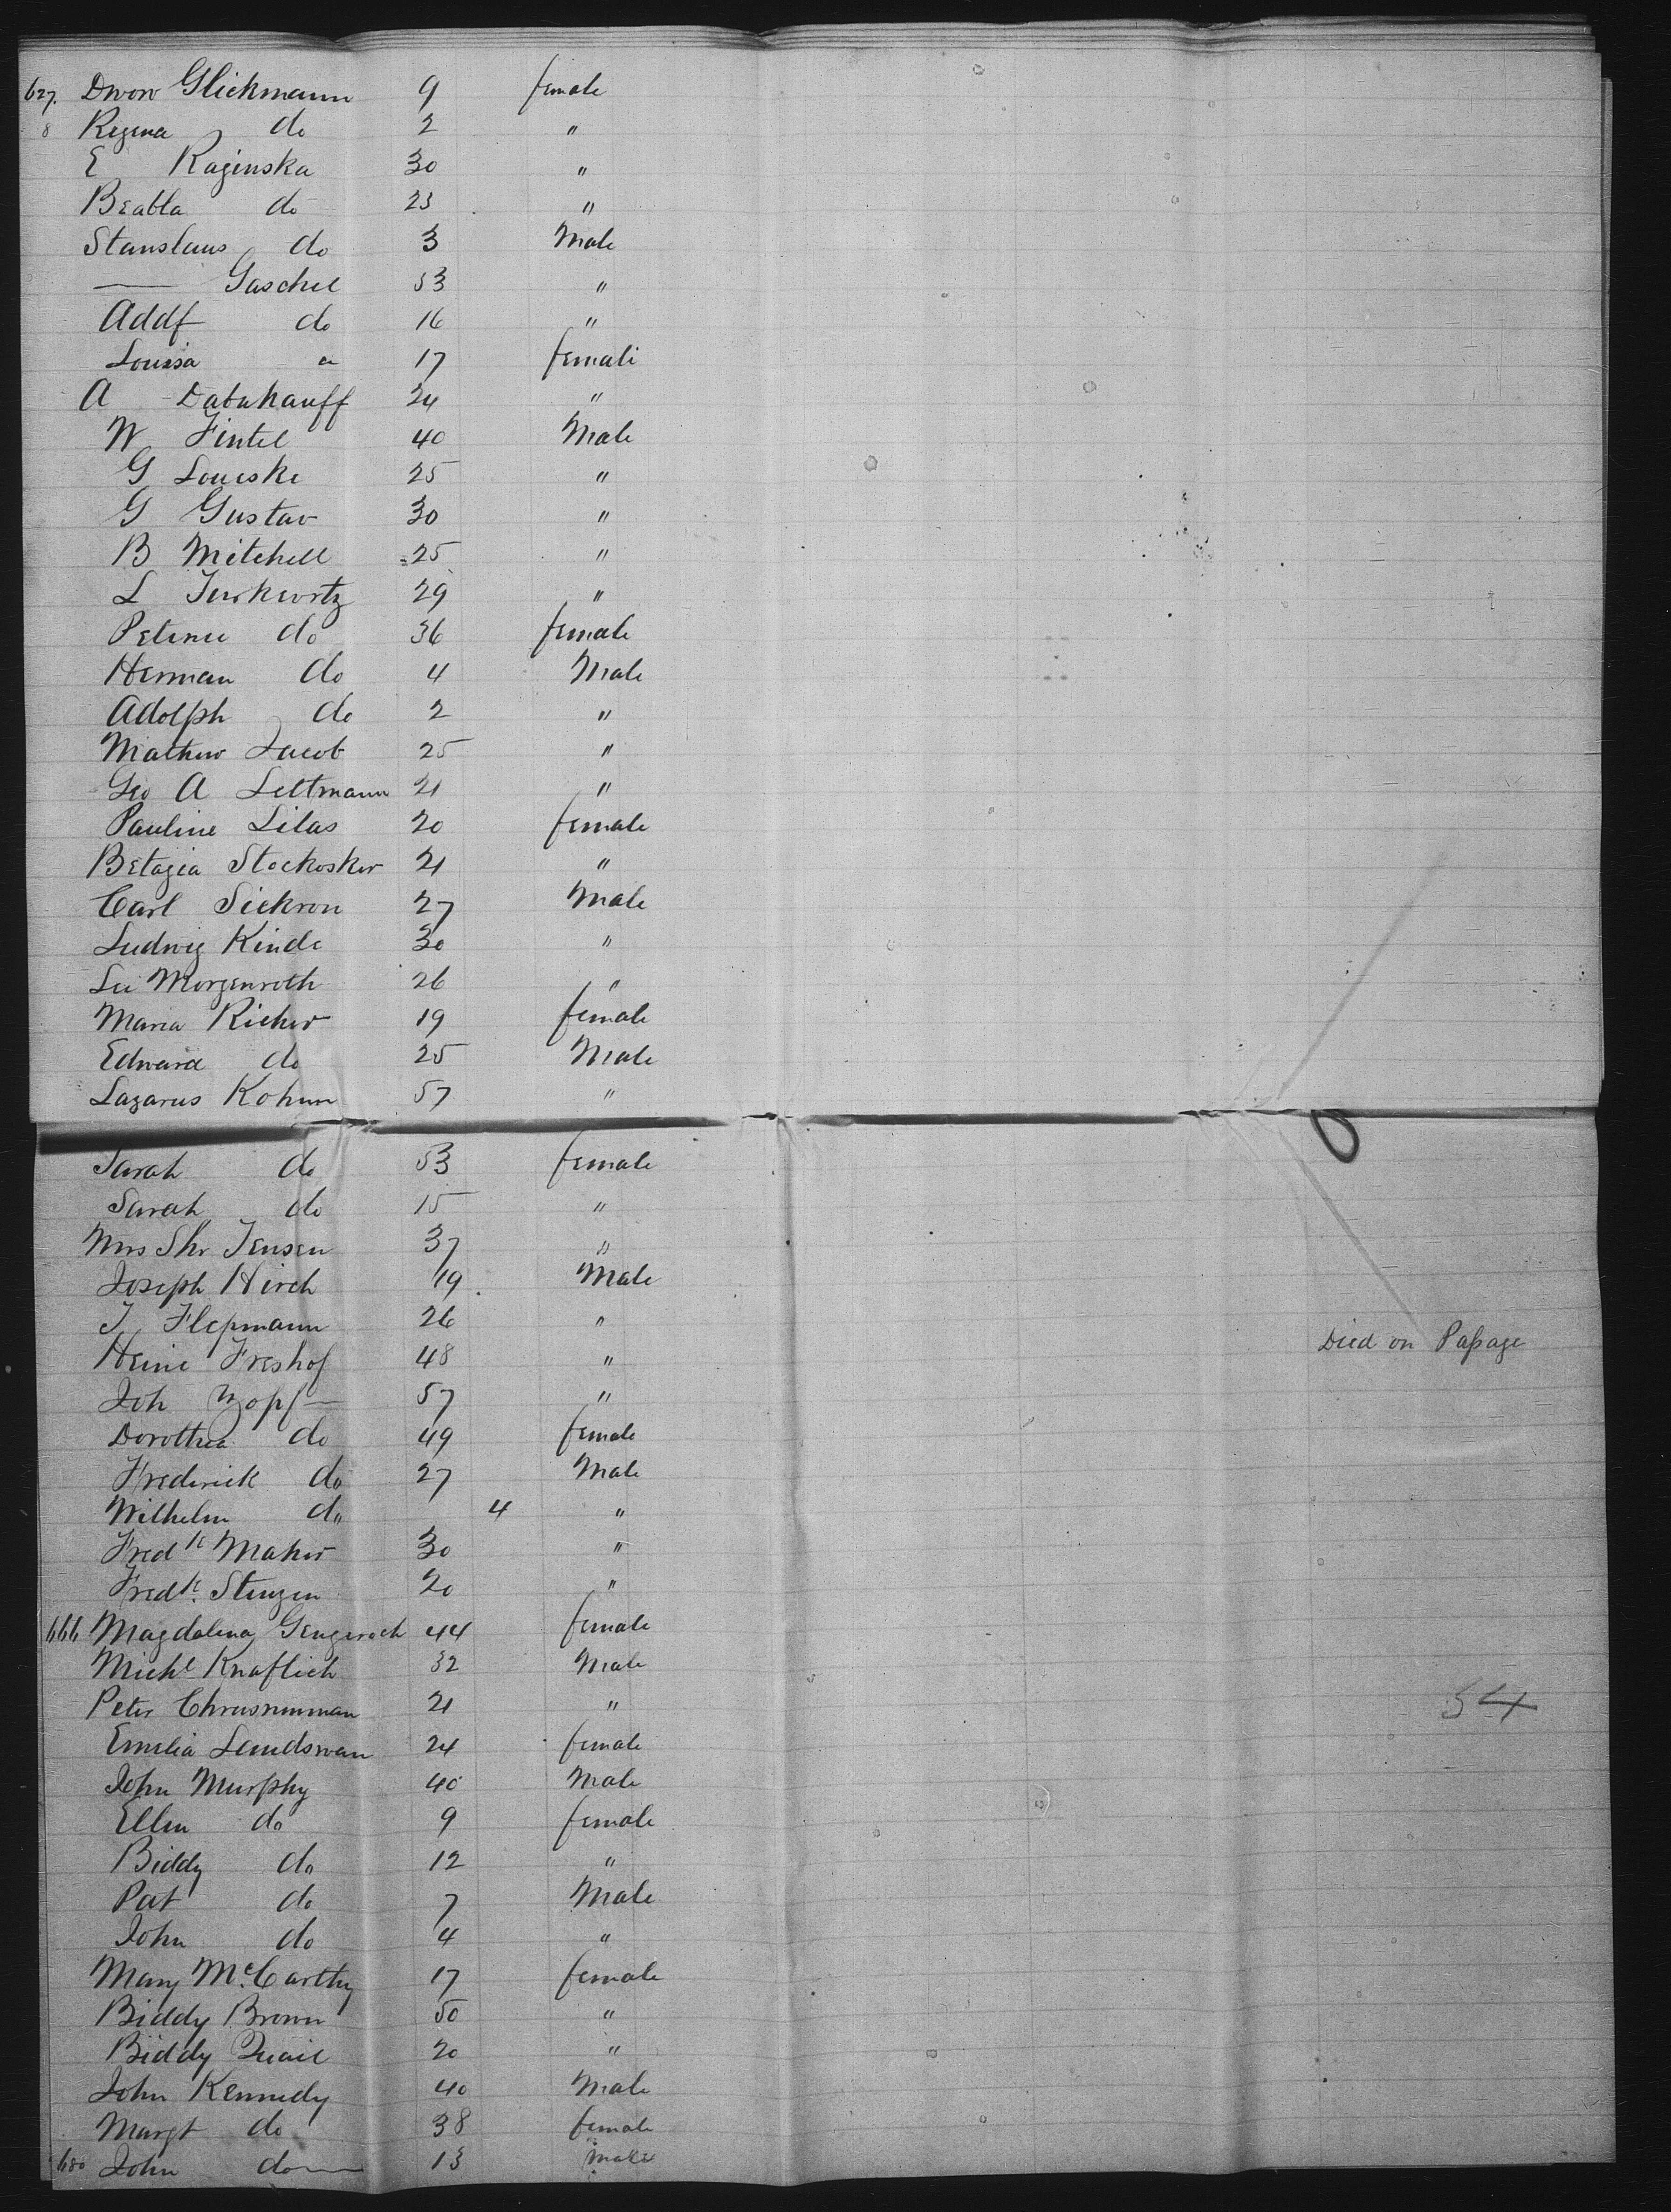 627. Dwow Glickmann 9 female
8 Regina do 2 "
E Raginska 30 "
Beabla do 23 "
Stanslaus do 3 Male
—— Gaschel 53 "
Addf do 16 "
Louisa " 17 female
A Dabahauff 24 "
W Fintel 40 Male
G Loueske 25 "
G Gustav 30 "
B Mitchell 25 "
L Turkewtz 29 "
Petinie do 36 female
Herman do 4 Male
Adolph do 2 "
Mathew Jacob 25 "
Geo A Leltmann 21 "
Pauline Lilas 20 female
Betagia Stockosker 21 "
Carl Sickron 27 Male
Ludwig Kinde 30 "
Lei Morgenroth 26 "
Maria Richer 19 female
Edward do 25 Male
Lazarus Kohnn 57 "
Sarah do 53 female
Sarah do 15 "
Mrs Shr Jensen 37 "
Joseph Hirch 19 Male
J Flepmann 26 "
Heini Freshof 48 " Died on Paßage
Joh Zopf — 57 "
Dorothea do 49 female
Frederick do 27 Male
Wilhelm do 4 "
Fredk Maher 30 "
Fredk. Stenzen 20 "
666 Magdalena Gengeroch 44 female
Michl Knaflich 32 Male
Peter Chrusnumman 21 " 54
Emelia Landswan 24 female
John Murphy 40 Male
Ellen do 9 female
Biddy do 12 "
Pat do 7 Male
John do 4 "
Mary McCarthy 17 female
Biddy Brown 50 "
Biddy Quail 20 "
John Kennedy 40 Male
Margt do 38 female
680 John do — 13 Male